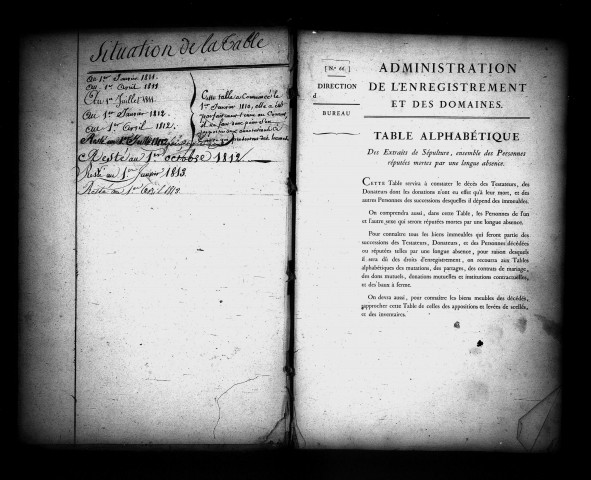 Situation de la Table
Au 1er Janvier 1811.
Au 1er Avril 1811
Au 1er Juillet 1811.
Au 1er Janvier 1812.
Au 1er Avril 1812.
Resté au 1er Juillet 1812
Resté au 1er octobre 1812.
Resté au 1er Janvier 1813.
Resté au 1er Avril 1813.
Cette table a Commencé le
1er Janvier 1810, elle a été
[N.° 66.]
DIRECTION
d
BUREAU
ADMINISTRATION
DE L'ENREGISTREMENT
ET DES DOMAINES.
TABLE ALPHABÉTIQUE
Des Extraits de Sépulture, ensemble des Personnes
réputées mortes par une longue absence.
CETTE Table servira à constater le décès des Testateurs, des
Donateurs dont les donations n'ont eu effet qu'à leur mort, et des
autres Personnes des successions desquelles il dépend des immeubles.
On comprendra aussi, dans cette Table, les Personnes de l'un
et l'autre sexe qui seront réputées mortes par une longue absence.
Pour connaître tous les biens immeubles qui feront partie des
successions des Testateurs, Donateurs, et des Personnes décédées
ou réputées telles par une longue absence, pour raison desquels
il sera dû des droits d'enregistrement, on recourra aux Tables
alphabétiques des mutations, des partages, des contrats de mariage,
des dons mutuels, donations mutuelles et institutions contractuelles,
et des baux à ferme.
On devra aussi, pour connaître les biens meubles des décédés,
rapprocher cette Table de celles des appositions et levées de scellés,
et des inventaires.